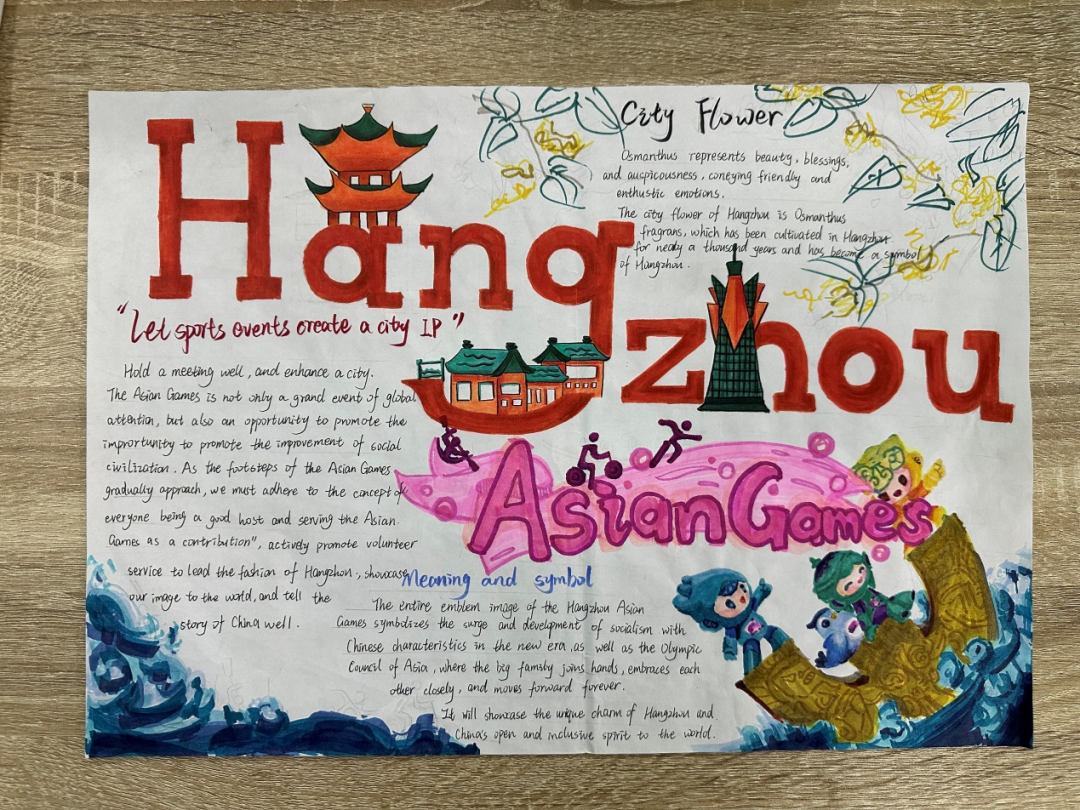 Hangzhou
City Flower
Osmanthus represents beauty, blessings,
and aucpicousness, coneying friendly and
enthustic emotions.
The city flower of Hangzhou is Osmanthus
fragrans, which has been cultivated in Hangzhou
for nealy a thousand years and has become a symbol
of Hangzhou.
"Let sports events create a city IP"
Hold a meeting well, and enhance a city.
The Asian Games is not only a grand event of global
attention, but also an opportunity to promote the
imprortunity to promote the improvement of social
civilization. As the footsteps of the Asian Games
gradually approach, we must adhere to the concept of
everyone being a good host and serving the Asian
Games as a contribution", actively promote volunteer
service to lead the fashion of Hangzhou, showcase
our image to the world, and tell the
story of China well.
Asian Games
Meaning and symbol
The entire emblem image of the Hangzhou Asian
Games symbolizes the surge and development of socialism with
Chinese characteristics in the new era, as well as the Olympic
Council of Asia, where the big family joins hands, embraces each
other closely, and moves forward forever.
It will showcase the unique charm of Hangzhou and
China's open and inclusive spirit to the world.